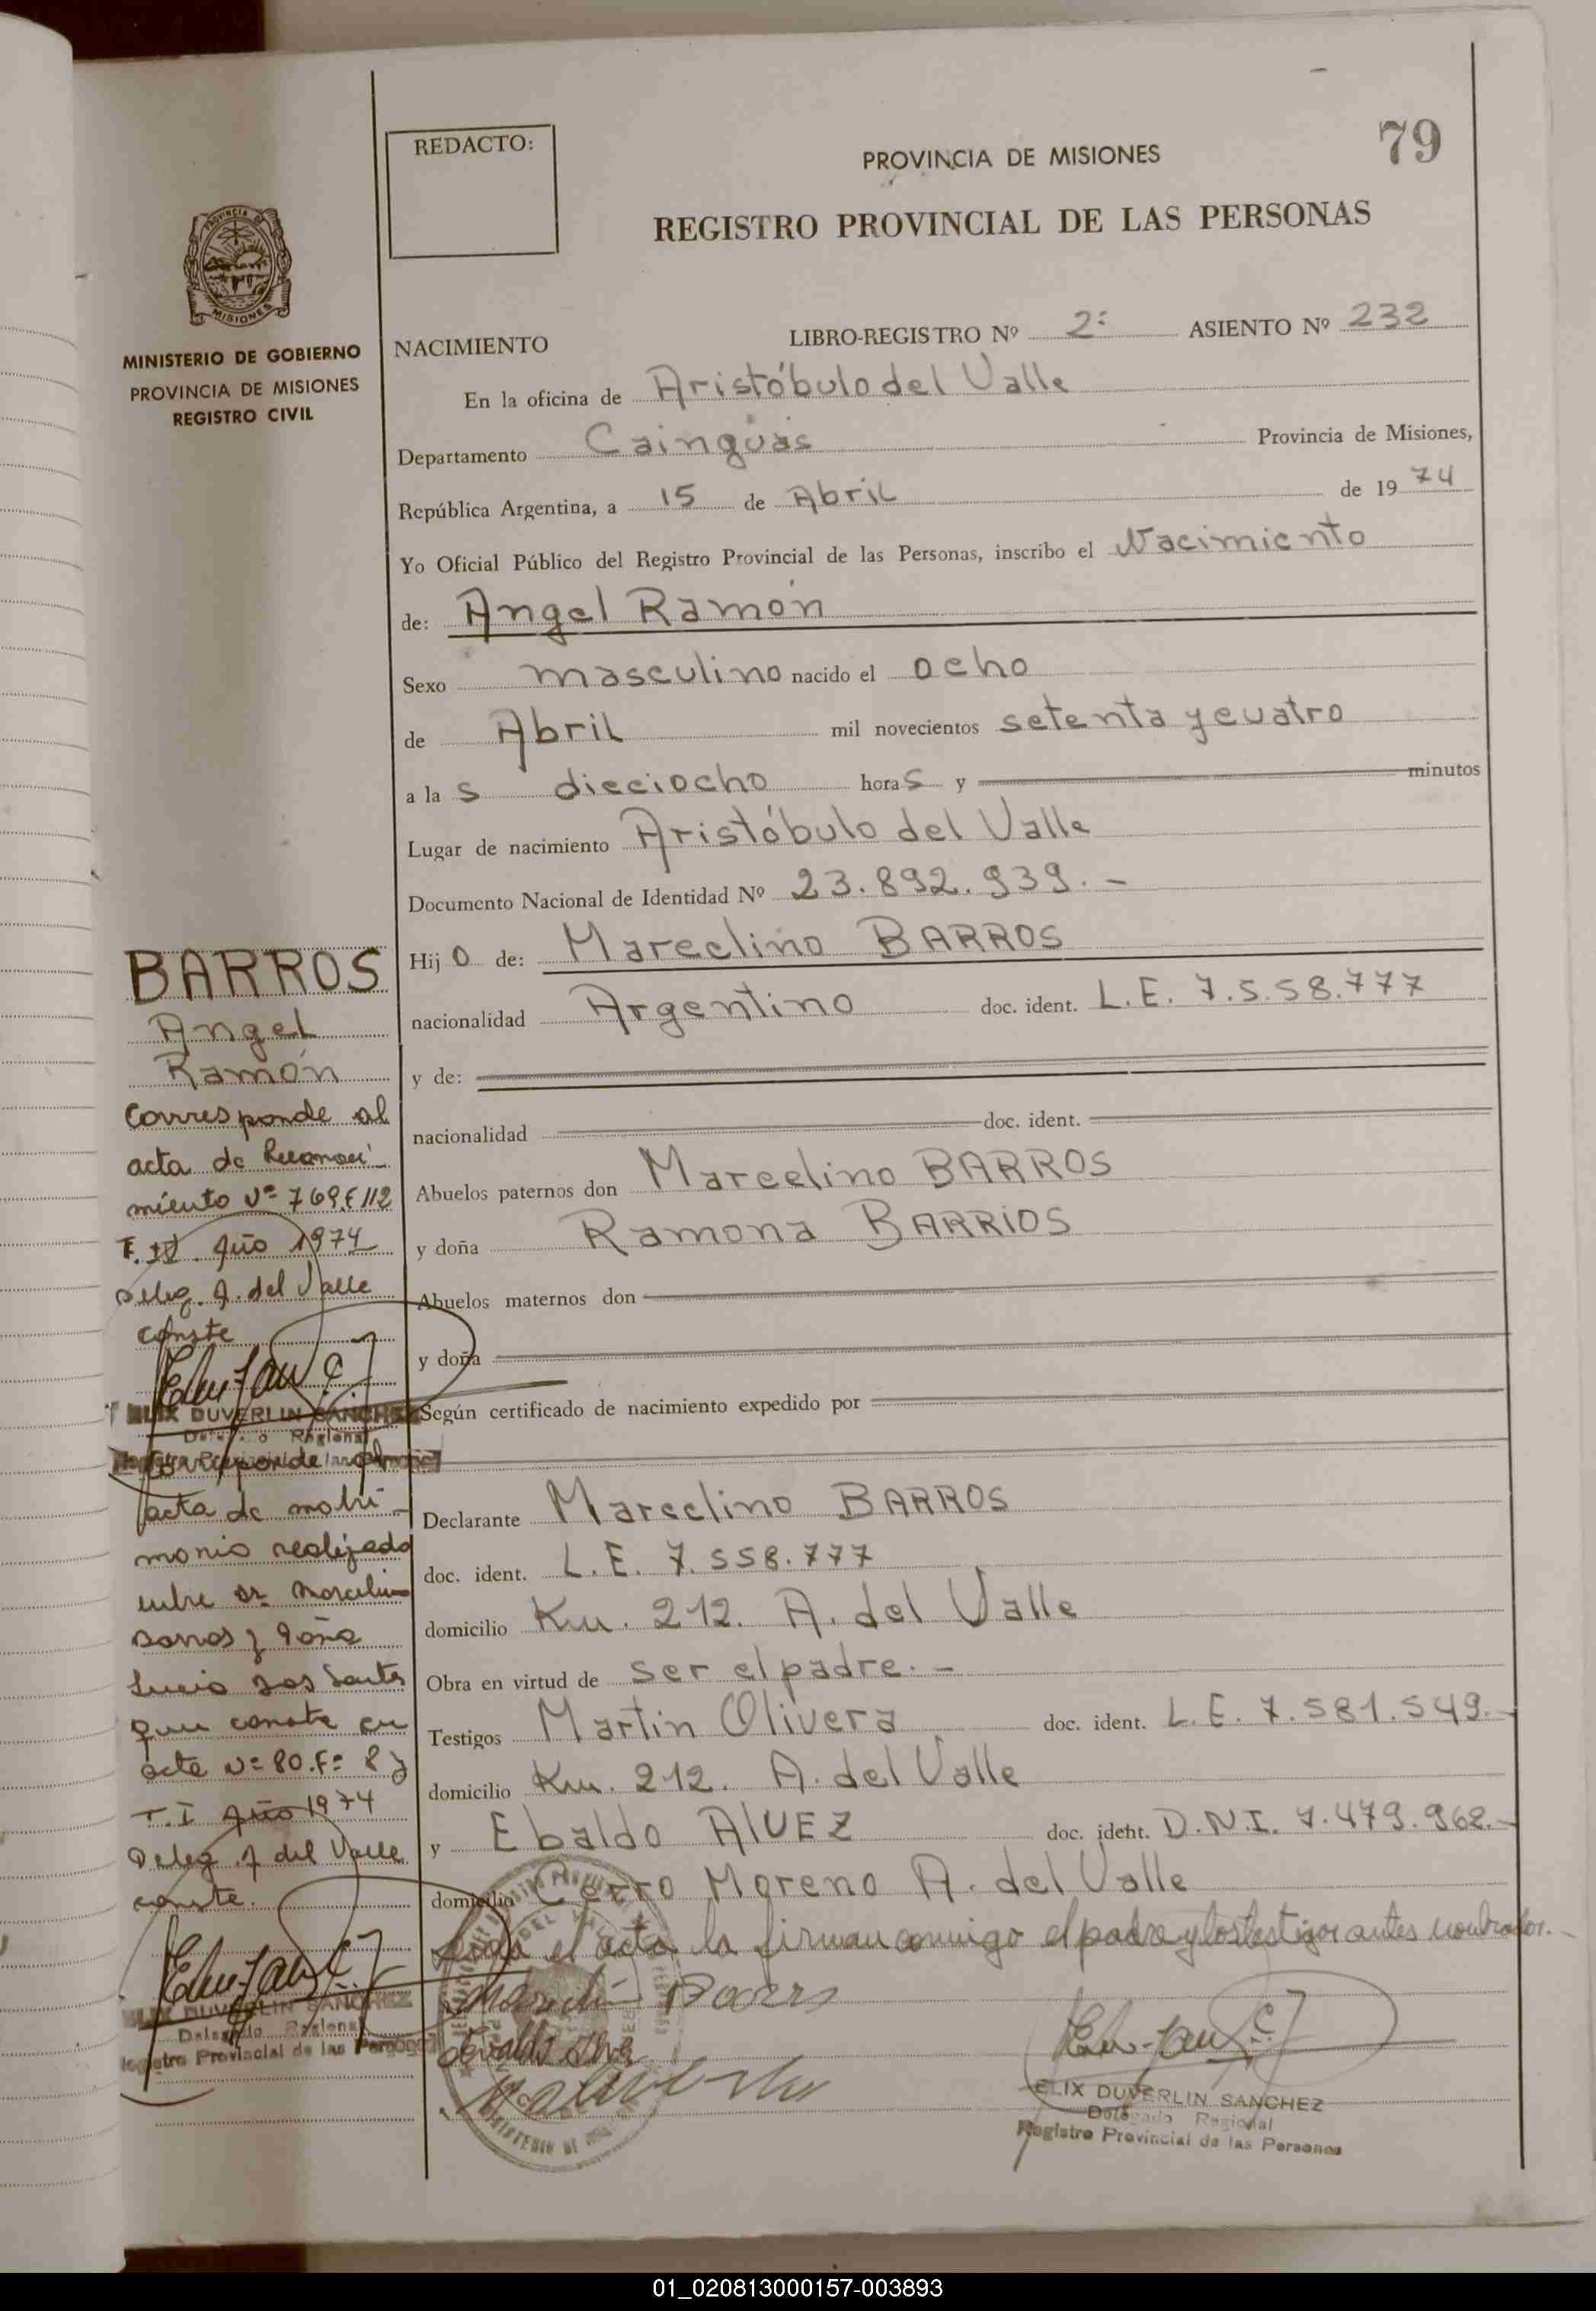 79
REDACTO:
PROVINCIA DE MISIONES
REGISTRO PROVINCIAL DE LAS PERSONAS
PROVINCIA DE
MISIONES
MINISTERIO DE GOBIERNO
PROVINCIA DE MISIONES
REGISTRO CIVIL
NACIMIENTO LIBRO-REGISTRO Nº 2º ASIENTO Nº 232
En la oficina de Aristóbulo del Valle
Departamento Cainguás Provincia de Misiones,
República Argentina, a 15 de Abril de 1974
Yo Oficial Público del Registro Provincial de las Personas, inscribo el Nacimiento
de: Angel Ramón
Sexo masculino nacido el ocho
de Abril mil novecientos setenta y cuatro
a la s dieciocho horas y minutos
Lugar de nacimiento Aristóbulo del Valle
Documento Nacional de Identidad Nº 23.892.939.-
Hijo de: Marcelino BARROS
nacionalidad Argentino doc. ident. L.E. 7.558.777
y de:
nacionalidad doc. ident.
Abuelos paternos don Marcelino BARROS
y doña Ramona BARRIOS
Abuelos maternos don
y doña
Según certificado de nacimiento expedido por
Declarante Marcelino BARROS
doc. ident. L.E. 7.558.777
domicilio Km. 212. A. del Valle
Obra en virtud de ser el padre.-
Testigos Martin Olivera doc. ident. L.E. 7.581.549.-
domicilio Km. 212. A. del Valle
y Ebaldo AlVEZ doc. ident. D.N.I. 7.479.962.-
domicilio Cerro Moreno A. del Valle
el acta la firman conmigo el padre y los testigos antes nombrados.-
ELIX DUVERLIN SANCHEZ
Delegado Regional
Registro Provincial de las Personas
BARROS
Angel
Ramón
Corresponde al
acta de Reconoci-
miento Nº 769.F 112
T. II. Año 1974
Deleg. A. del Valle
conste
ELIX DUVERLIN SANCHEZ
Delegado Regional
Corresponde al
acta de matri-
monio realizado
entre Dn. Marcelino
Barros y Doña
Lucia Dos Santos
que consta en
acta Nº 80.Fº 8
T.I Año 1974
Deleg. A del Valle
conste.
ELIX DUVERLIN SANCHEZ
Delegado Regional
Registro Provincial de las Personas
01_020813000157-003893